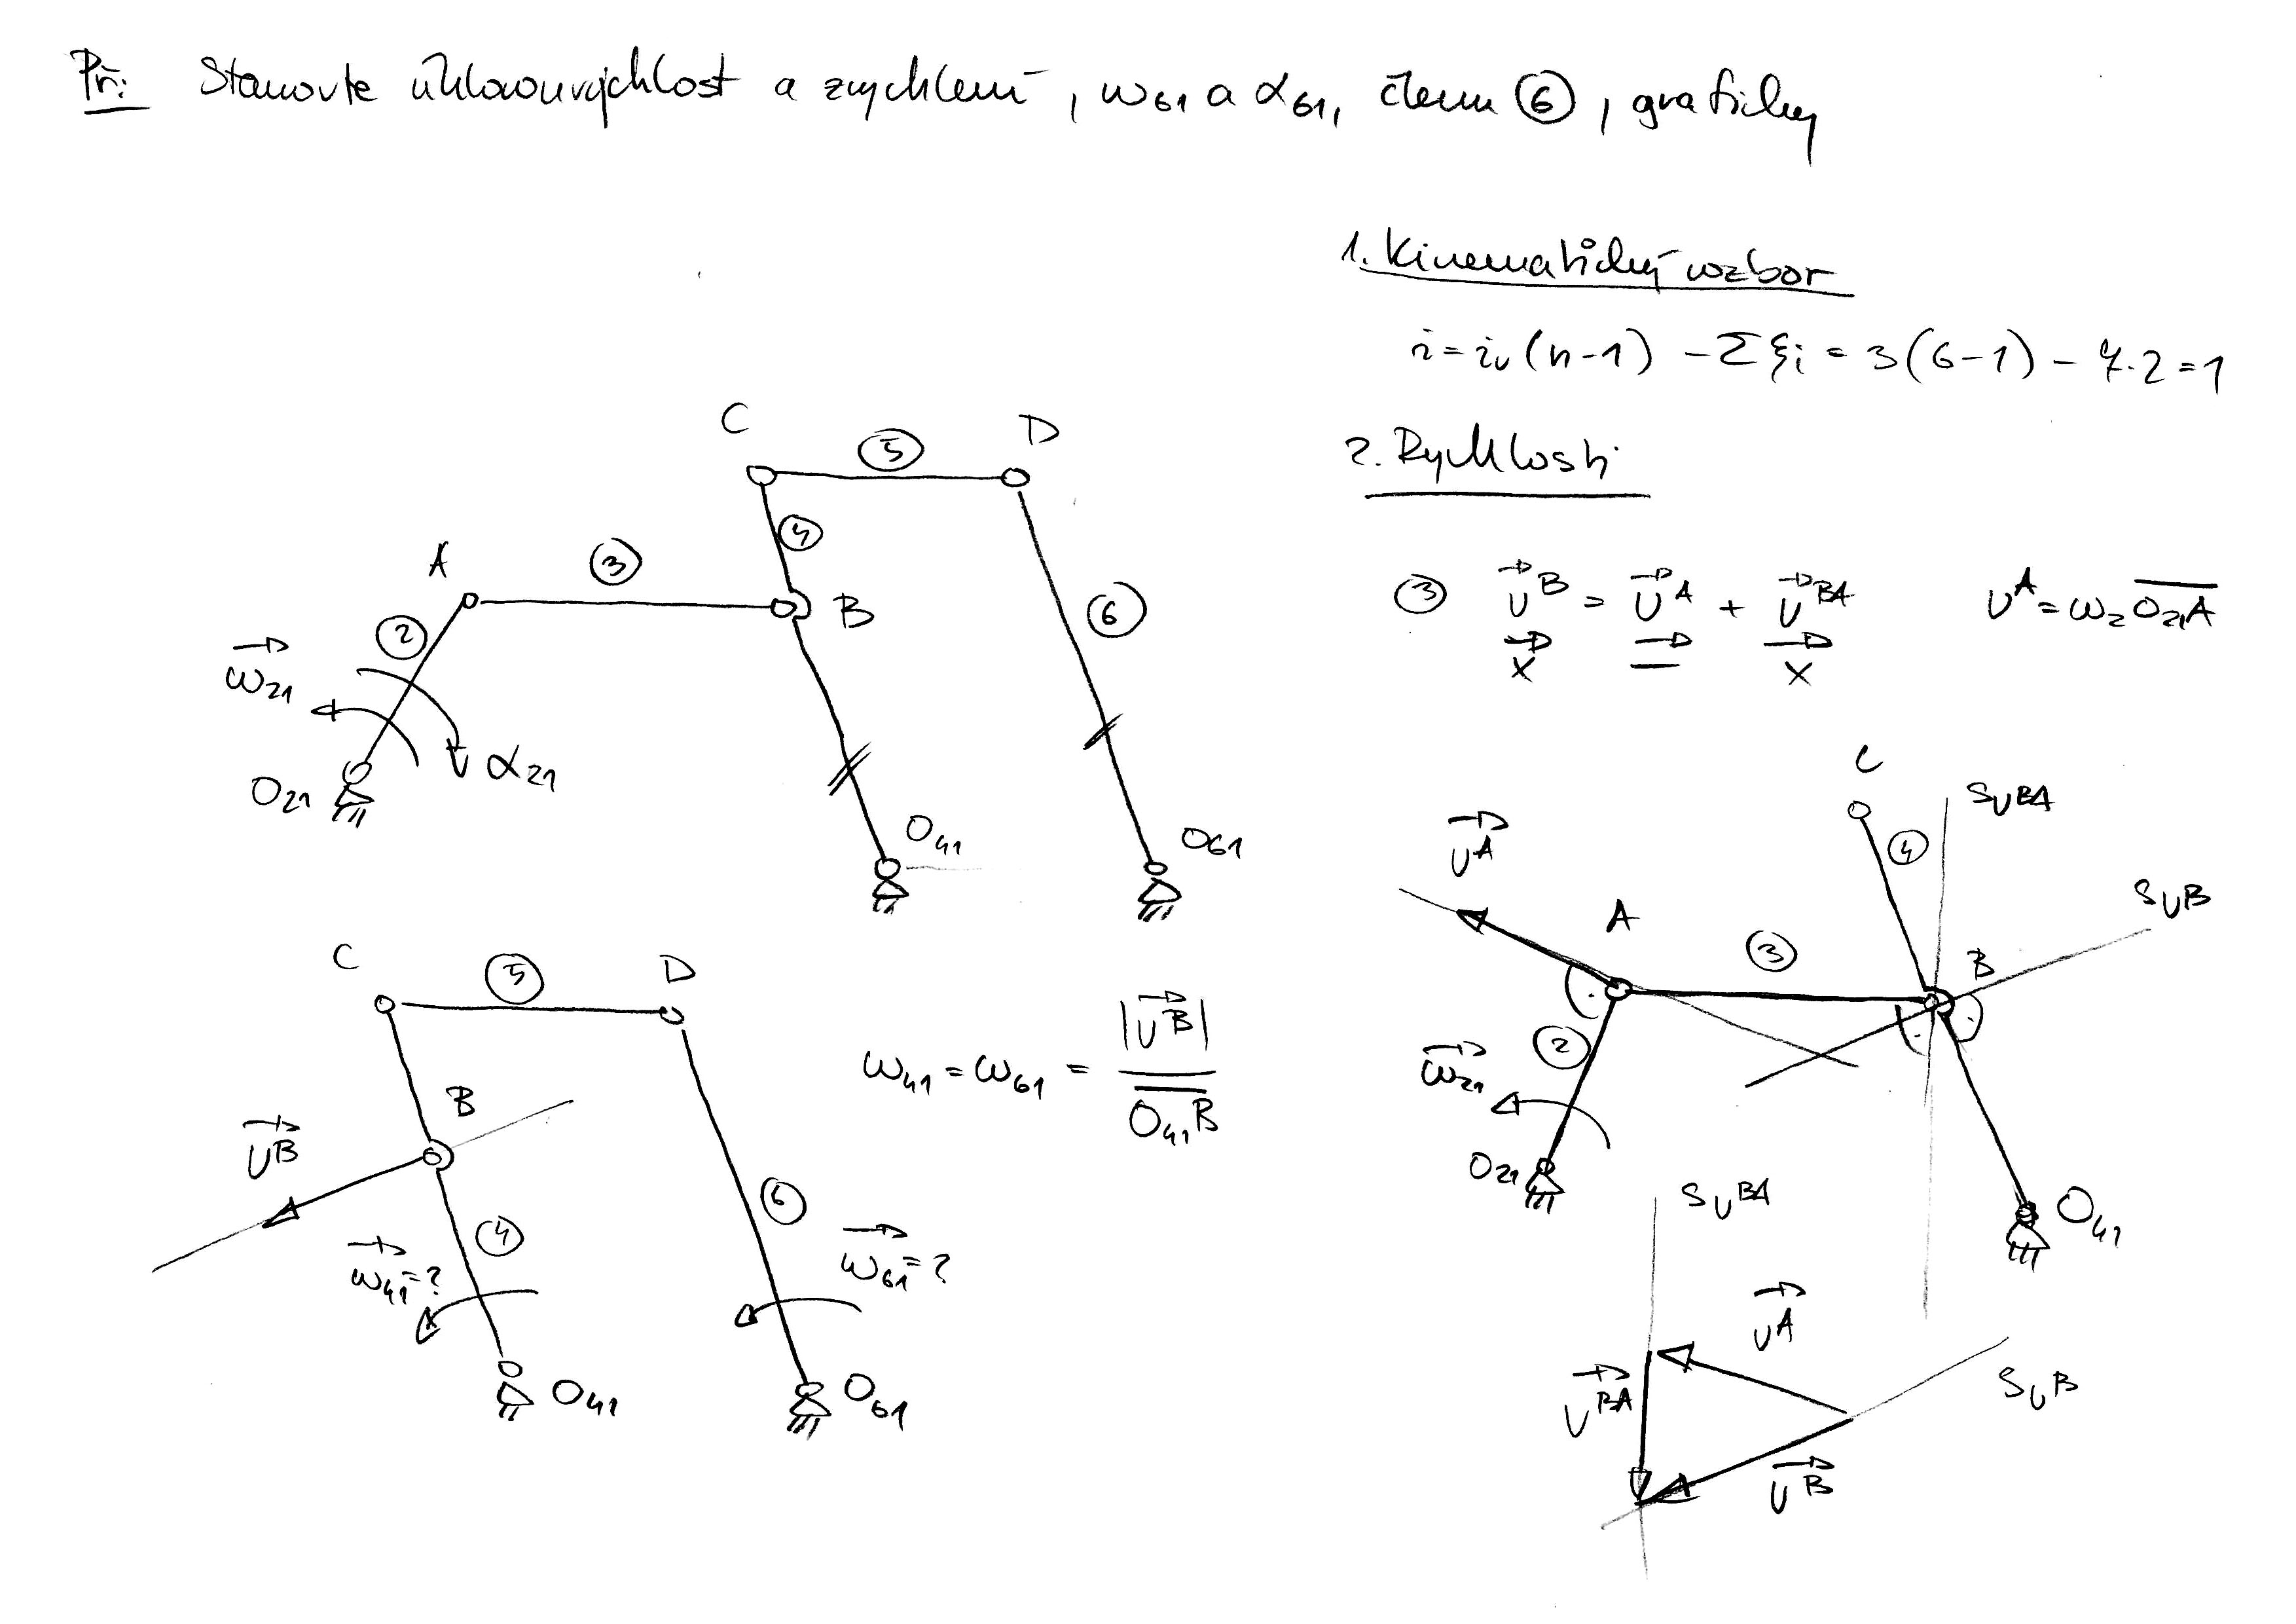 Př: Stanovte úhlovou rychlost a zrychlení, ω61 a α61, členu ⑥, graficky
1. Kinematický rozbor
i = iv (n-1) - Σξi = 3(6-1) - 7.2 = 1
2. Rychlosti
③ v^B = v^A + v^BA v^A = ω2 O21A
x x
C ⑤ D
A ③ ④
② B ⑥
ω21
α21
O21
O41 O61
C SvBA
v^A ④
A SvB
③ B
②
ω21
O21
O41
C ⑤ D
ω41 = ω61 = |v^B| / O41B
B
v^B
④ ⑥
ω41=? ω61=?
O41 O61
SvBA
v^A
v^BA SvB
v^B